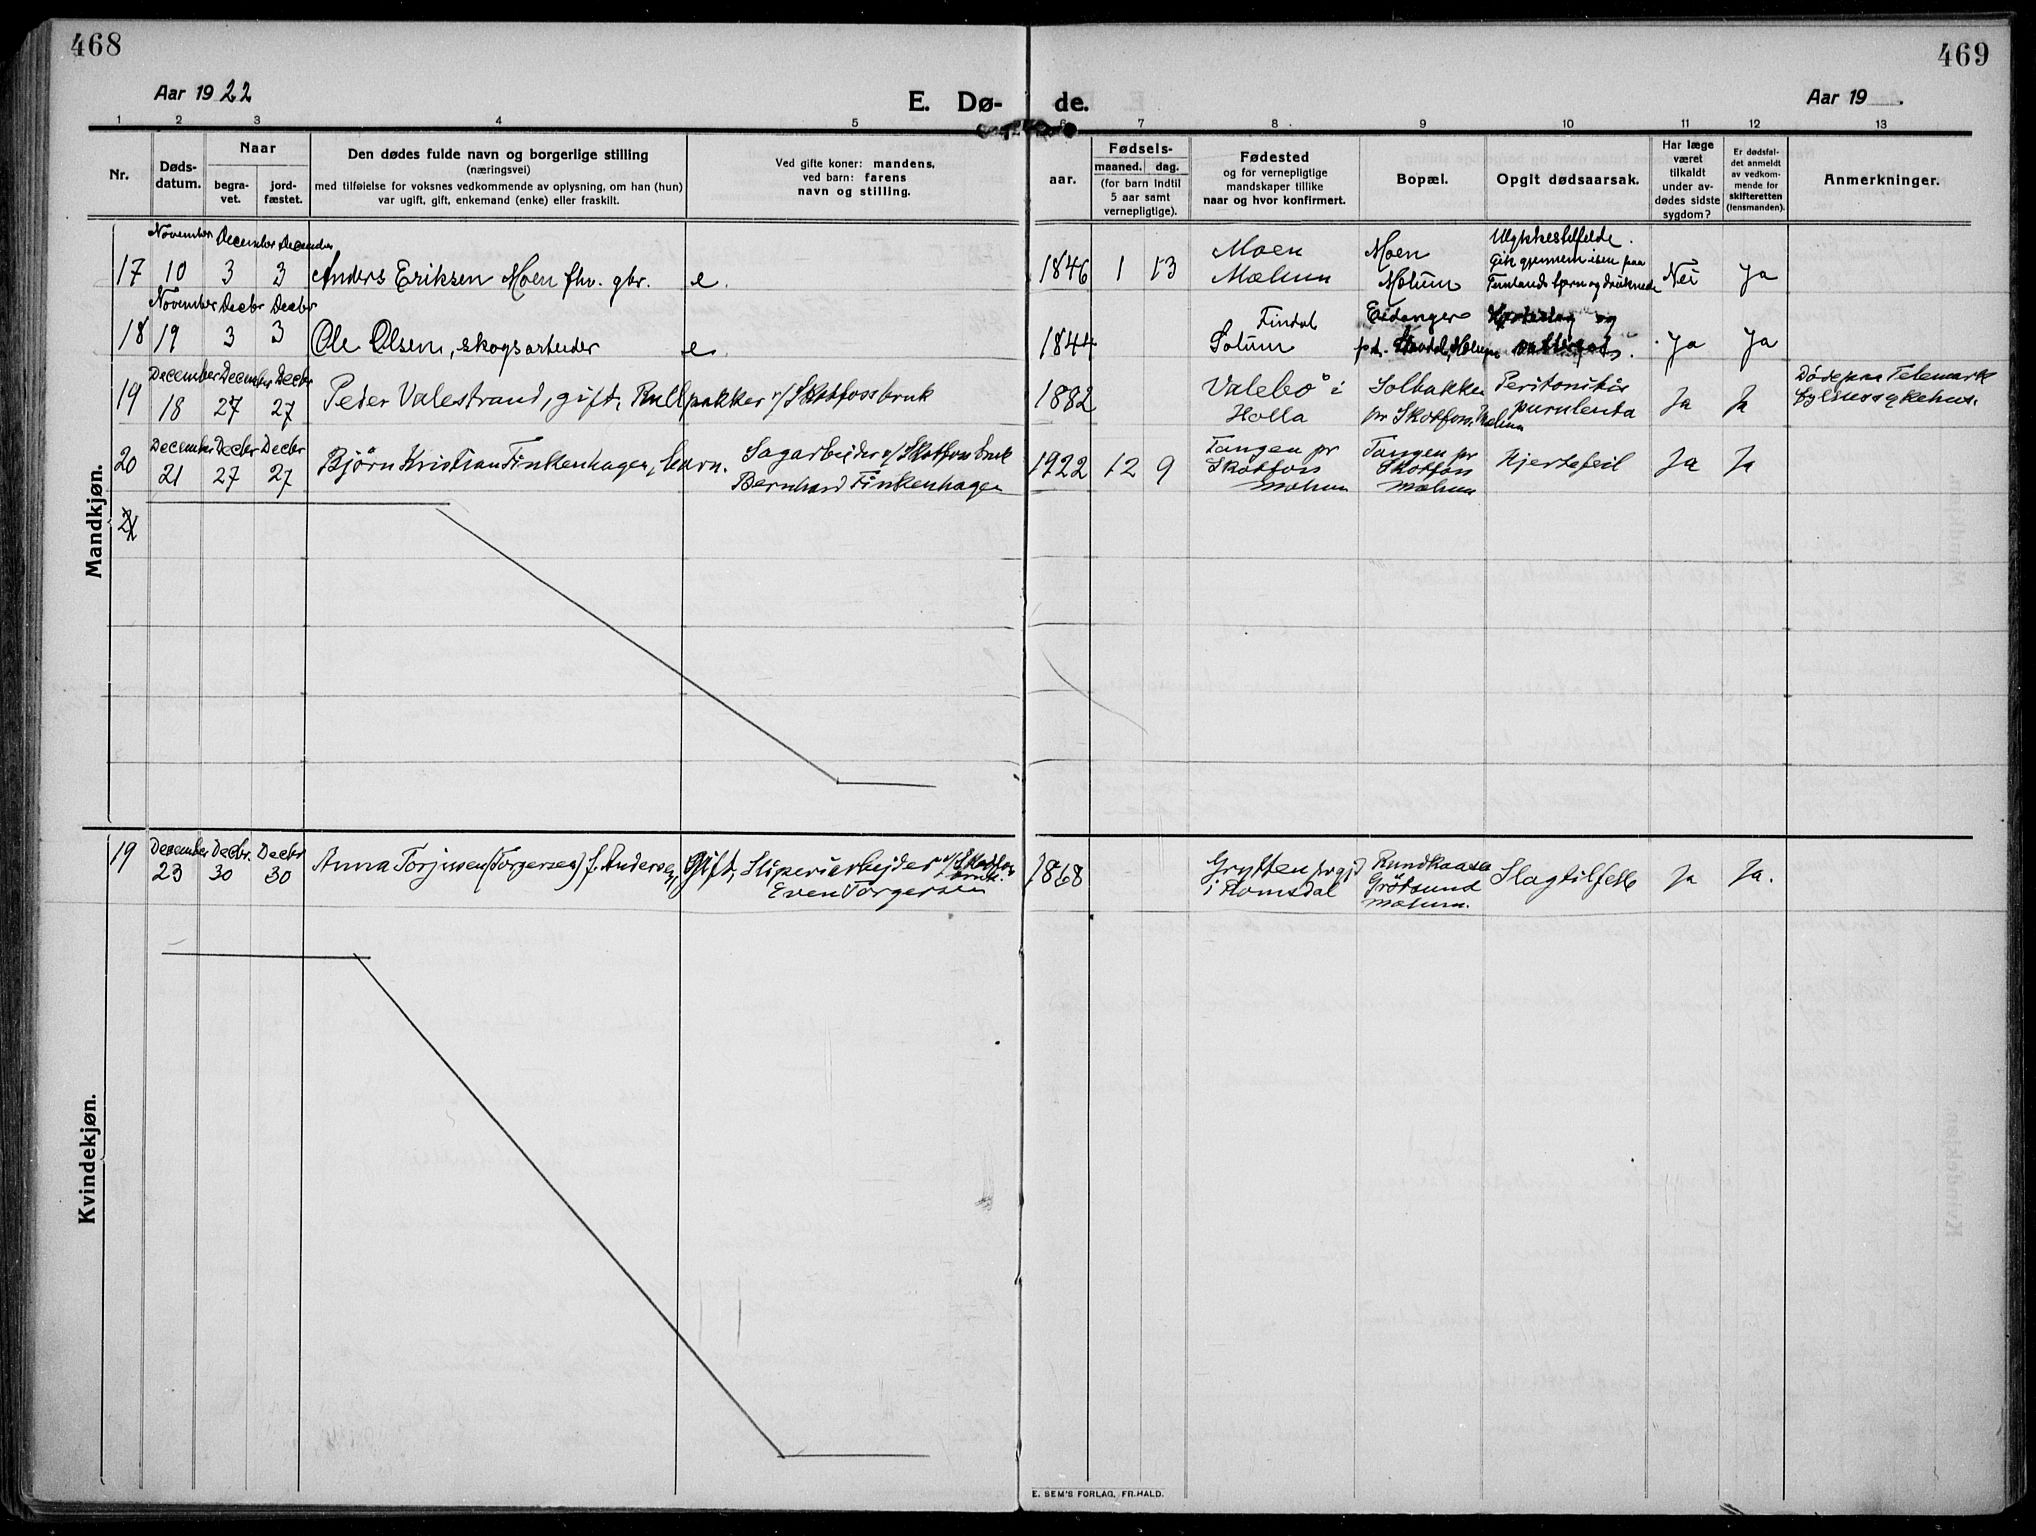 468
469
Aar 1922
E. Dø-
de.
Aar 19
1 2 3 4 5 6 7 8 9 10 11 12 13
Nr.
Døds-
datum.
Naar
begra-
vet.
jord-
fæstet.
Den dødes fulde navn og borgerlige stilling
(næringsvei)
med tilføielse for voksnes vedkommende av oplysning, om han (hun)
var ugift, gift, enkemand (enke) eller fraskilt.
Ved gifte koner: mandens,
ved barn: farens
navn og stilling.
aar.
Fødsels-
maaned. dag.
(for barn indtil
5 aar samt
vernepligtige).
Fødested
og for vernepligtige
mandskaper tillike
naar og hvor konfirmert.
Bopæl.
Opgit dødsaarsak.
Har læge
været
tilkaldt
under av-
dødes sidste
sygdom?
Er dødsfal-
det anmeldt
av vedkom-
mende for
skifteretten
(lensmanden).
Anmerkninger.
Mandkjøn.
November December December
17 10 3 3 Anders Eriksen Moen fhv. gbr. e.
1846 1 13
Moen
Mælum
Moen
Mælum
Ulykkestilfelde.
Gik gjennem isen paa
tjern og druknede
Nei Ja
November Decbr Decbr
18 19 3 3 Ole Olsen, skogsarbeider e.
1844
Findal
Solum
Eidanger
og
Ja Ja
December December Decbr
19 18 27 27 Peder Valestrand, gift, Rullpakker v/ Skotfossbruk
1882
Valebø i
Holla
Solbakken
pr Skotfoss, Mælum
Peritonitis
purulenta
Ja Ja
Døde paa Telemark
fylkessykehus.
December Decbr Decbr
20 21 27 27 Bjørn Kristian Finkenhagen, barn.
Sagarbeider v/ Skotfoss bruk
Bernhard Finkenhagen
1922 12 9
Tangen pr
Skotfoss
Mælum
Tangen pr
Skotfoss
Mælum
Hjertefeil
Ja Ja
21
Kvindekjøn.
December Decbr. Decbr
19 23 30 30 Anna Torjusen (Torgersen) f. Andersen
Gift, Sliperiarbejder v/ Skotfos
bruk.
Even Torgersen
1868
Grytten prgj
i Romsdal
Rundkaasa
Grøtsund
Mælum.
Slagtilfelle
Ja Ja.
E. SEM'S FORLAG, FR.HALD.